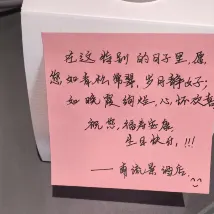 在这特别的日子里,愿
您如春松常翠,岁月静好;
如晚霞绚烂,心怀欢喜
祝您,福寿安康
生日快乐!!!
——南流景酒店